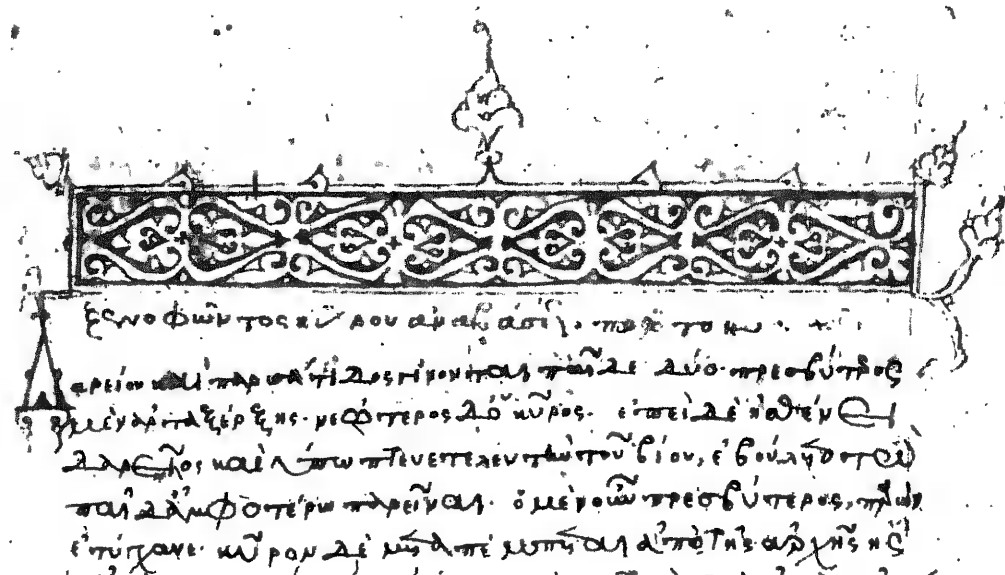 ξενοφῶντος κύρου ἀναβάσε
Δαρείου καὶ παρυσάτιδος γίγνονται παῖδε δύο· πρεσβύτερος
μὲν ἀρταξέρξης· νεώτερος δὲ κῦρος· ἐπεὶ δὲ ἠσθένει
δαρεῖος καὶ ὑπώπτευε τελευτὴν τοῦ βίου, ἐβούλετο τὼ
παῖδ' ἀμφοτέρω παρεῖναι· ὁ μὲν οὖν πρεσβύτερος, παρὼν
ἐτύγχανε· κῦρον δὲ μεταπέμπεται ἀπὸ τῆς ἀρχῆς ἧς